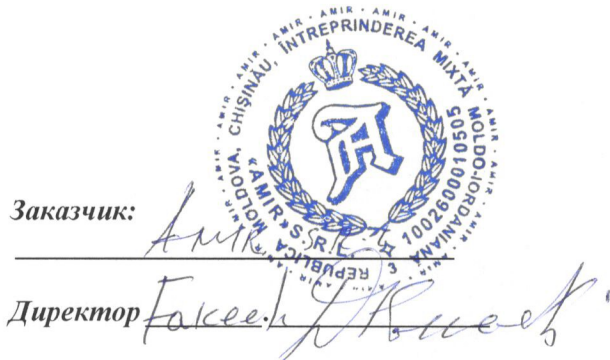 AMIR · AMIR · AMIR · AMIR · AMIR · AMIR
REPUBLICA MOLDOVA, CHIȘINĂU, ÎNTREPRINDEREA MIXTĂ MOLDO-IORDANIANĂ
«AMIR» S.R.L. ¤ 1002600010505
A
3
Заказчик: AMIR S.R.L
Директор